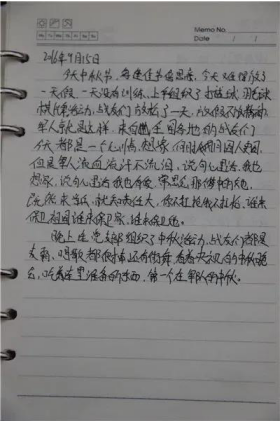 Memo No.
Date / /
2016年9月15日
今天中秋节，每逢佳节倍思亲，今天连里放了
一天假，一天没有训练，上午组织了打篮球，羽毛球
棋牌等活动，战友们放松了一天，放假不放精神
军人就是这样，来自祖国各地的战友们
今天都是一个心情，想家，但
但是军人流血流汗不流泪，说句心里话，我也
想家，说句心里话我也有爱，常思念那个梦中的她，
既然来当兵，就知责任大，你不扛枪我不扛枪，谁来
保卫祖国谁来保卫家，谁来保卫她。
晚上在党支部组织了中秋活动，战友们都是
唱歌都很棒还有街舞，看看央视的中秋晚
会，吃着连里准备的东西，第一个在军队的中秋。